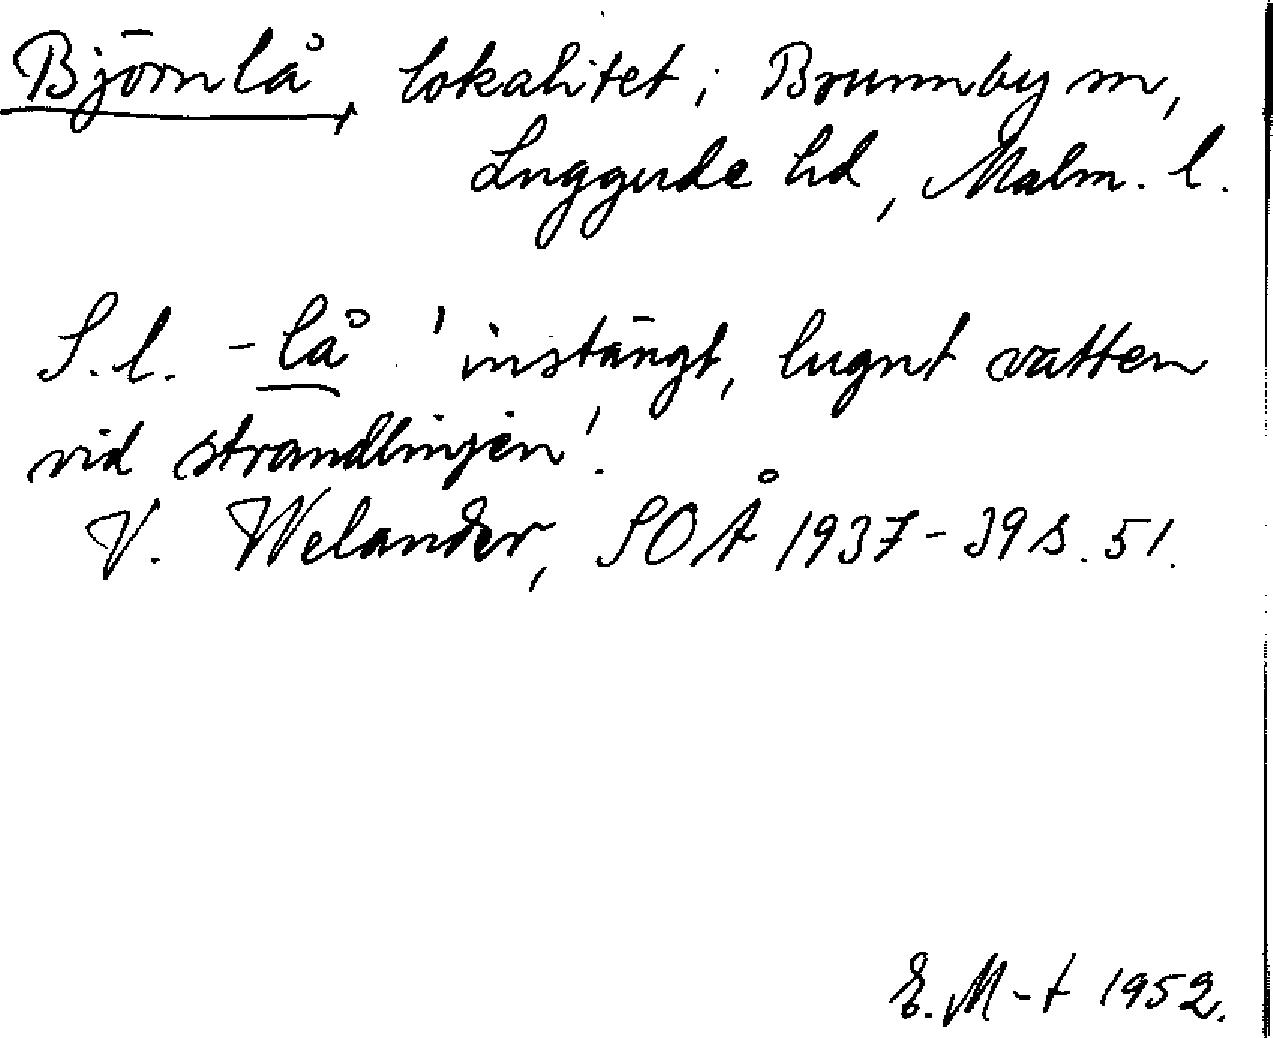 Björnlå, lokalitet i Brunnby sn,
Luggude hd, Malm. l.
S.l. -lå 'instängt, lugnt vatten
vid strandlinjen'.
V. Welander, SOÅ 1937-39 s. 51.
E. M-t 1952.